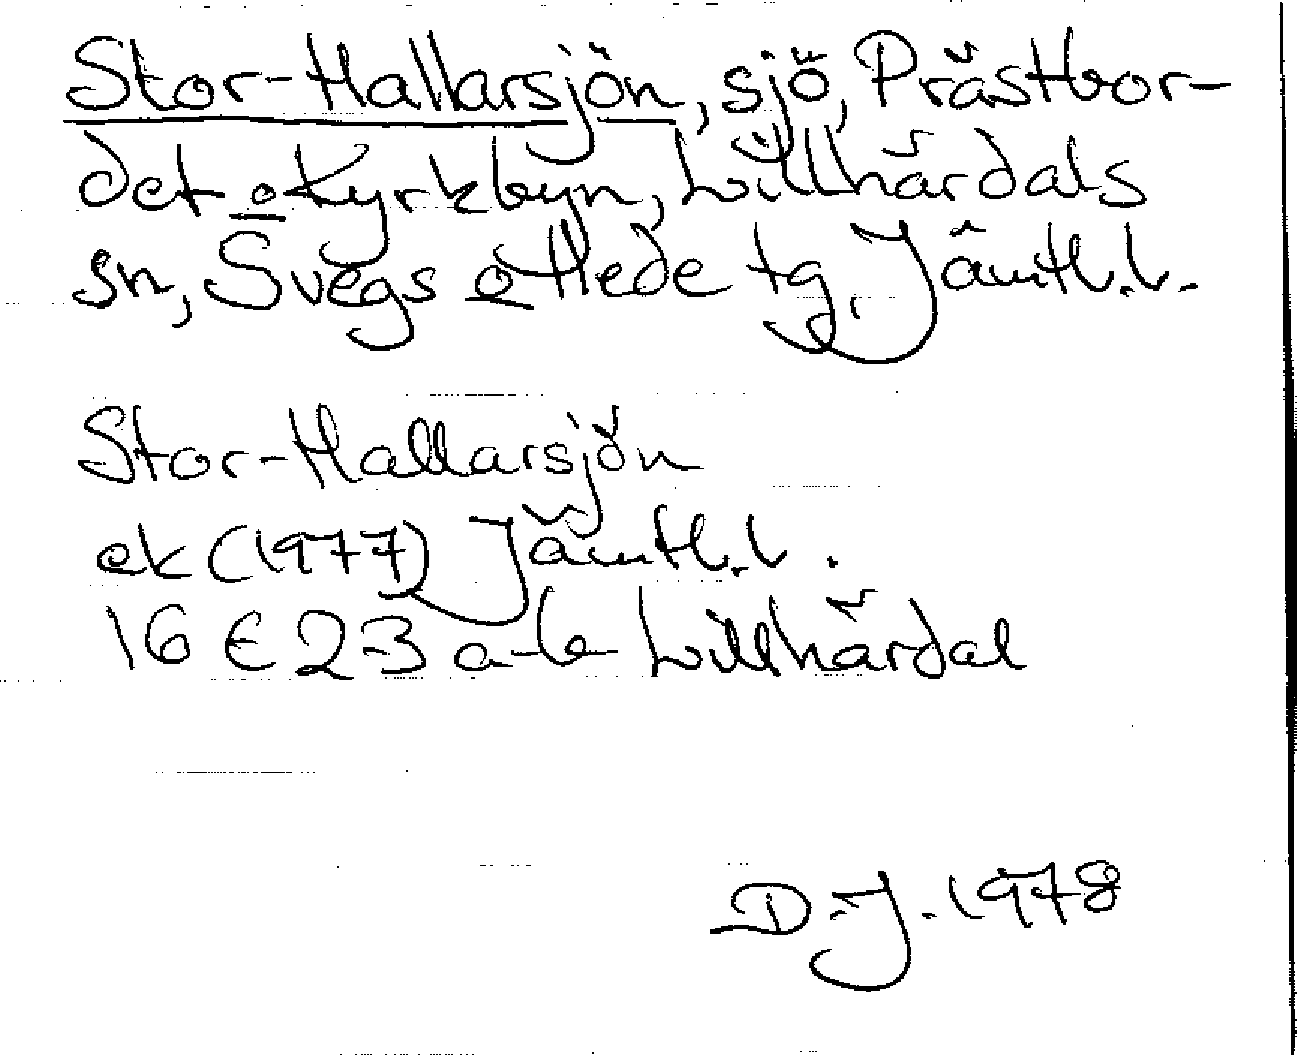 Stor-Hallarsjön, sjö, Prästbor-
det o Kyrkbyn, Lillhärdals
sn, Svegs o Hede tg, Jämtl.l.
Stor-Hallarsjön
ek (1977) Jämtl.l.
16 E 2-3 a-b Lillhärdal
D.J. 1978